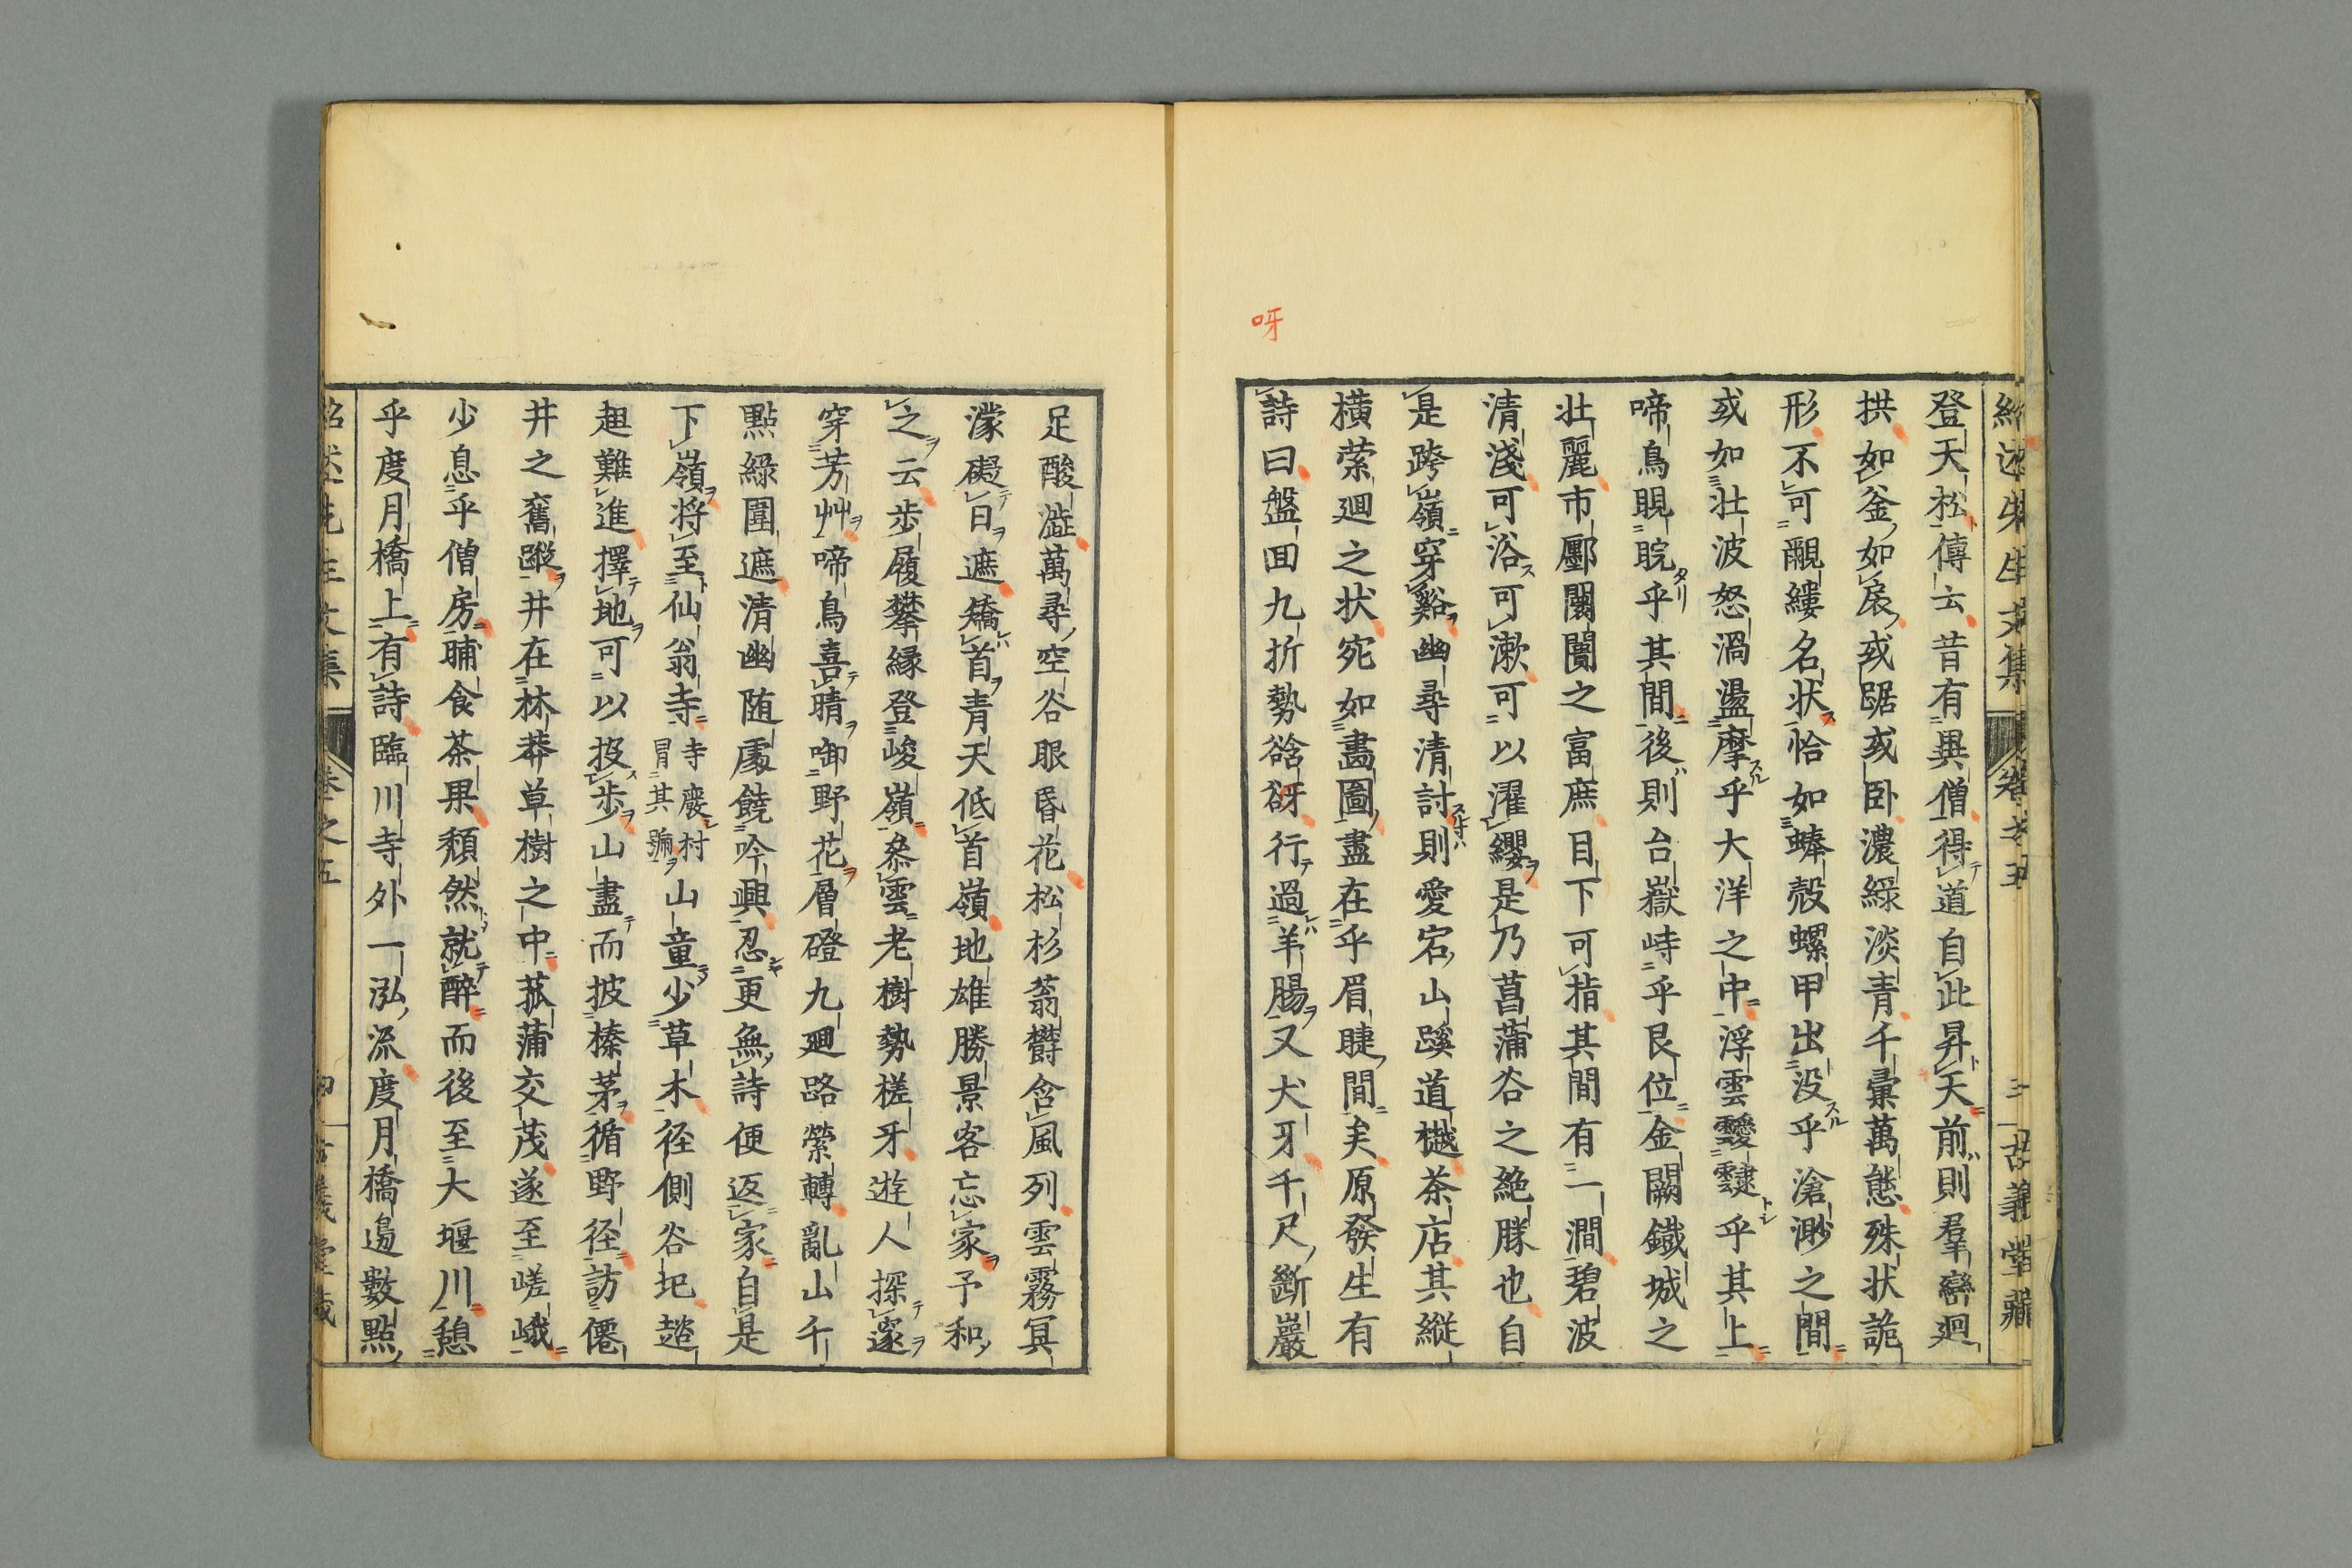 呀
紹述先生文集
卷之五
三
古義堂藏
登天松傳云昔有異僧得道自此昇天前則羣巒廻
拱如釜如扆或踞或卧濃綠淡青千彙萬態殊状詭
形不可覼縷名状恰如蜯殻螺甲出没乎滄渺之間
或如壮波怒濤盪摩乎大洋之中浮雲靉靆乎其上
啼鳥睍睆乎其間後則台嶽峙乎艮位金闕鐵城之
壮麗市廛闤闠之富庶目下可指其間有一澗碧波
清淺可浴可漱可以濯纓是乃菖蒲谷之絶勝也自
是跨嶺穿谿幽尋清討則愛宕山蹊道樾茶店其縦
横縈廻之状宛如畵圖盡在乎眉睫間矣原發生有
詩曰盤回九折勢谽谺行過羊腸又犬牙千尺斷巖
足酸澁萬尋空谷眼昏花松杉蓊欝含風列雲霧冥
濛礙日遮矯首青天低首嶺地雄勝景客忘家予和
之云歩履攀縁登峻嶺叅雲老樹勢槎牙遊人探邃
穿芳艸啼鳥喜晴啣野花層磴九廻路縈轉亂山千
點綠圍遮清幽随處饒吟興忍更無詩便返家自是
下嶺将至仙翁寺
寺廢村
冒其號
山童少草木径側谷圮趑
趄難進擇地可以投歩山盡而披榛茅循野径訪僊
井之舊蹤井在林莽草樹之中菰蒲交茂遂至嵯峨
少息乎僧房晡食茶果頽然就醉而後至大堰川憩
乎度月橋上有詩臨川寺外一泓流度月橋邉數點
紹述先生文集
卷之五
古義堂藏